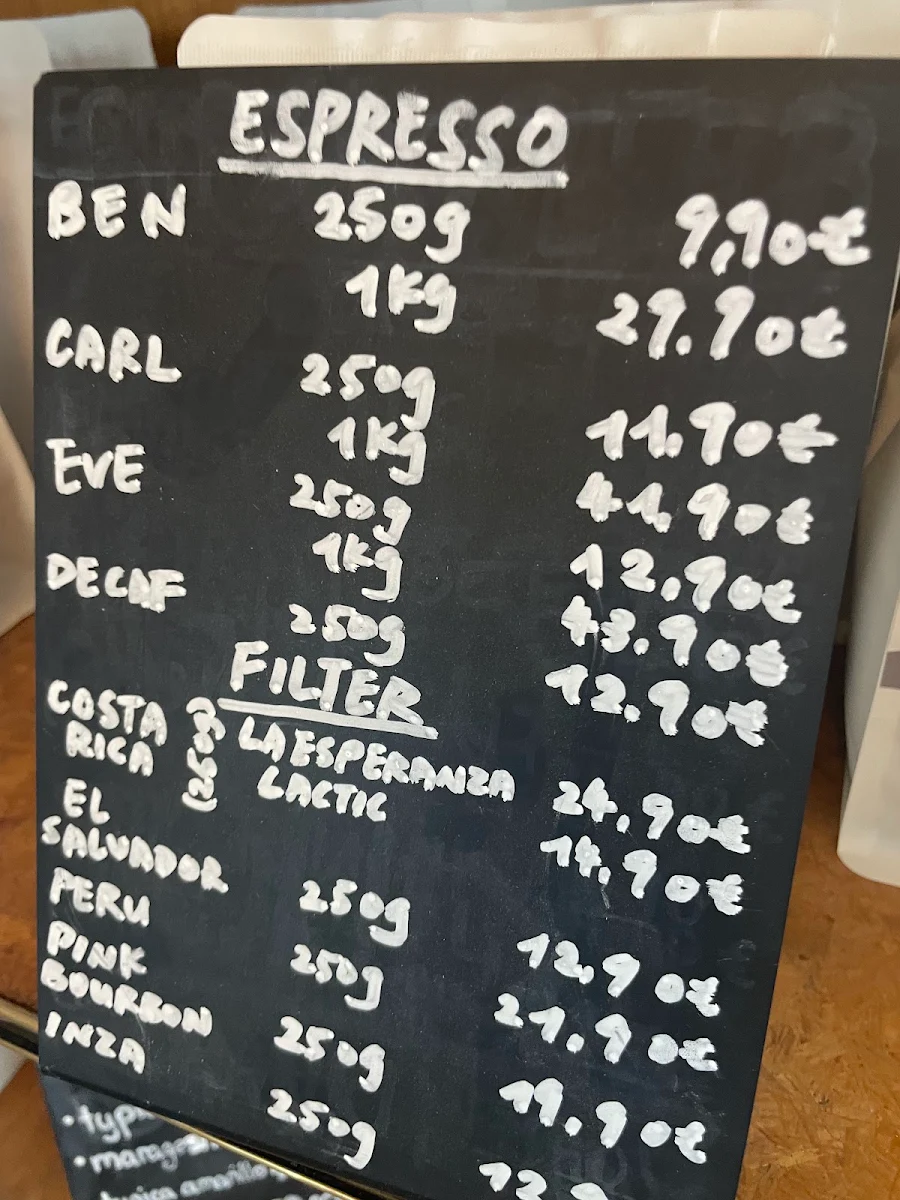 ESPRESSO
BEN 250g 9,90€
1kg 29.90€
CARL 250g 11.90€
1kg 41.90€
EVE 250g 12.90€
1kg 43.90€
DECAF 250g 12.90€
FILTER
COSTA RICA (250g) LA ESPERANZA 24.90€
LACTIC 14.90€
EL
SALVADOR 250g 12,90€
PERU 250g 21.90€
PINK
BOURBON 250g 19.90€
INZA 250g 12